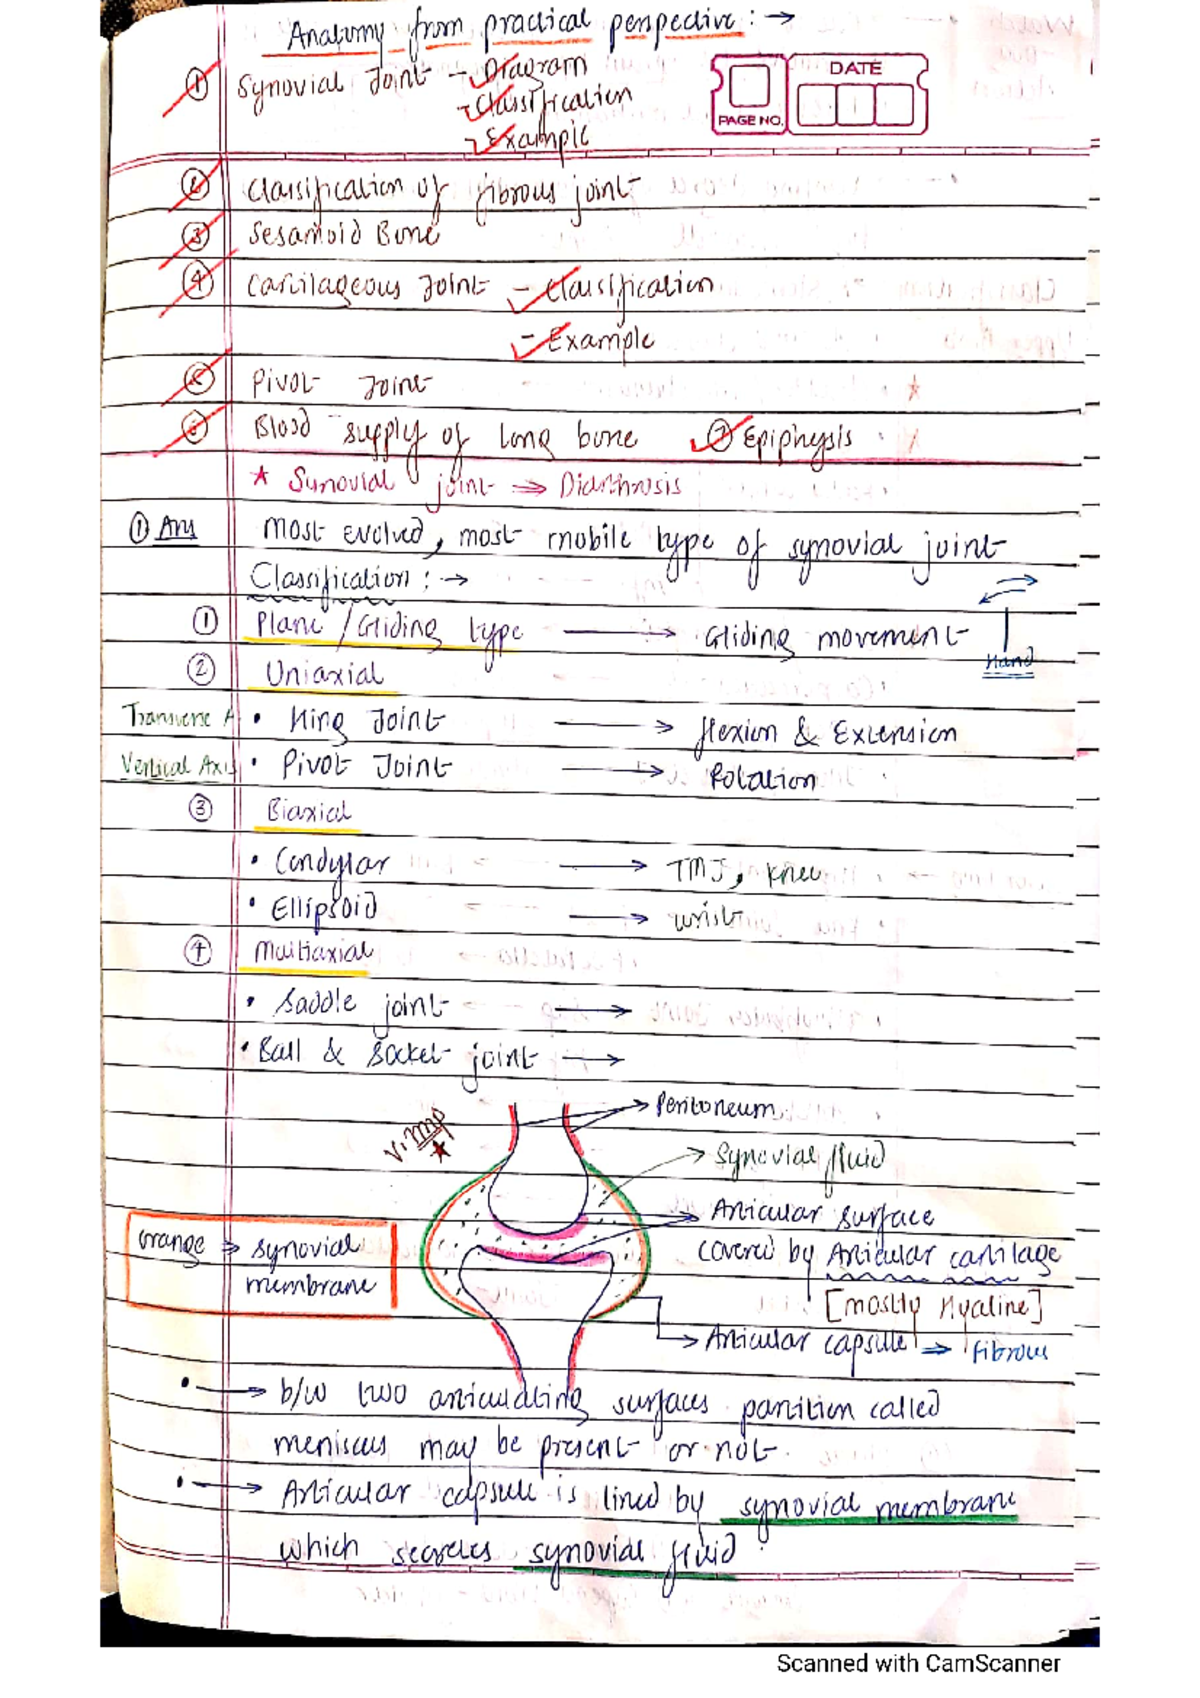 Anatomy from practical perspective : →
① Synovial Joint - Diagram
- Classification
- Example
PAGE NO.
DATE
② Classification of fibrous joint
③ Sesamoid Bone
④ Cartilageous Joint - Classification
- Example
⑤ Pivot Joint
⑥ Blood supply of long bone ⑦ Epiphysis
★ Synovial joint ⇒ Diarthrosis
① Ans most evolved, most mobile type of synovial joint
Classification : →
① Plane / Gliding type → Gliding movement
Hand
② Uniaxial
Transverse A • Hing Joint → flexion & Extension
Vertical Axis • Pivot Joint → Rotation
③ Biaxial
• Condylar → TMJ, knee
• Ellipsoid → wrist
④ Multiaxial
• Saddle joint →
• Ball & Socket joint →
V. Imp ★
Peritoneum
Synovial fluid
Articular surface
covered by Articular cartilage
[mostly Hyaline]
Articular capsule ⇒ fibrous
orange ⇒ synovial
membrane
• → b/w two articulating surfaces partition called
meniscus may be present or not.
• → Articular capsule is lined by synovial membrane
which secretes synovial fluid.
Scanned with CamScanner